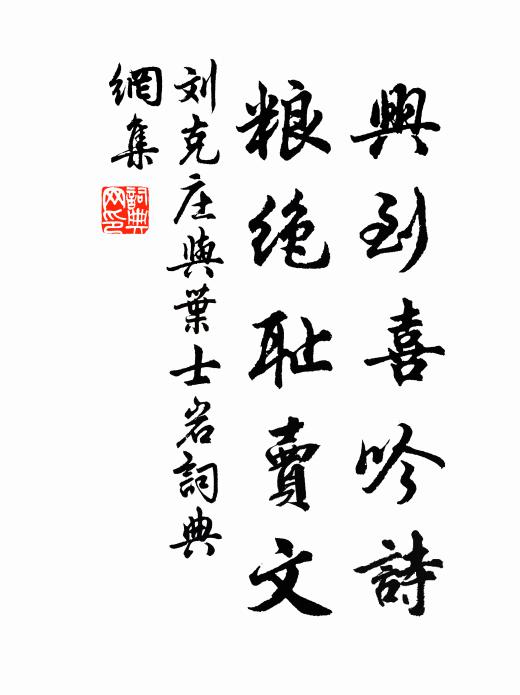 興到喜吟詩
粮绝耻賣文
刘克庄與葉士岩詞典
網集
詞典
网印